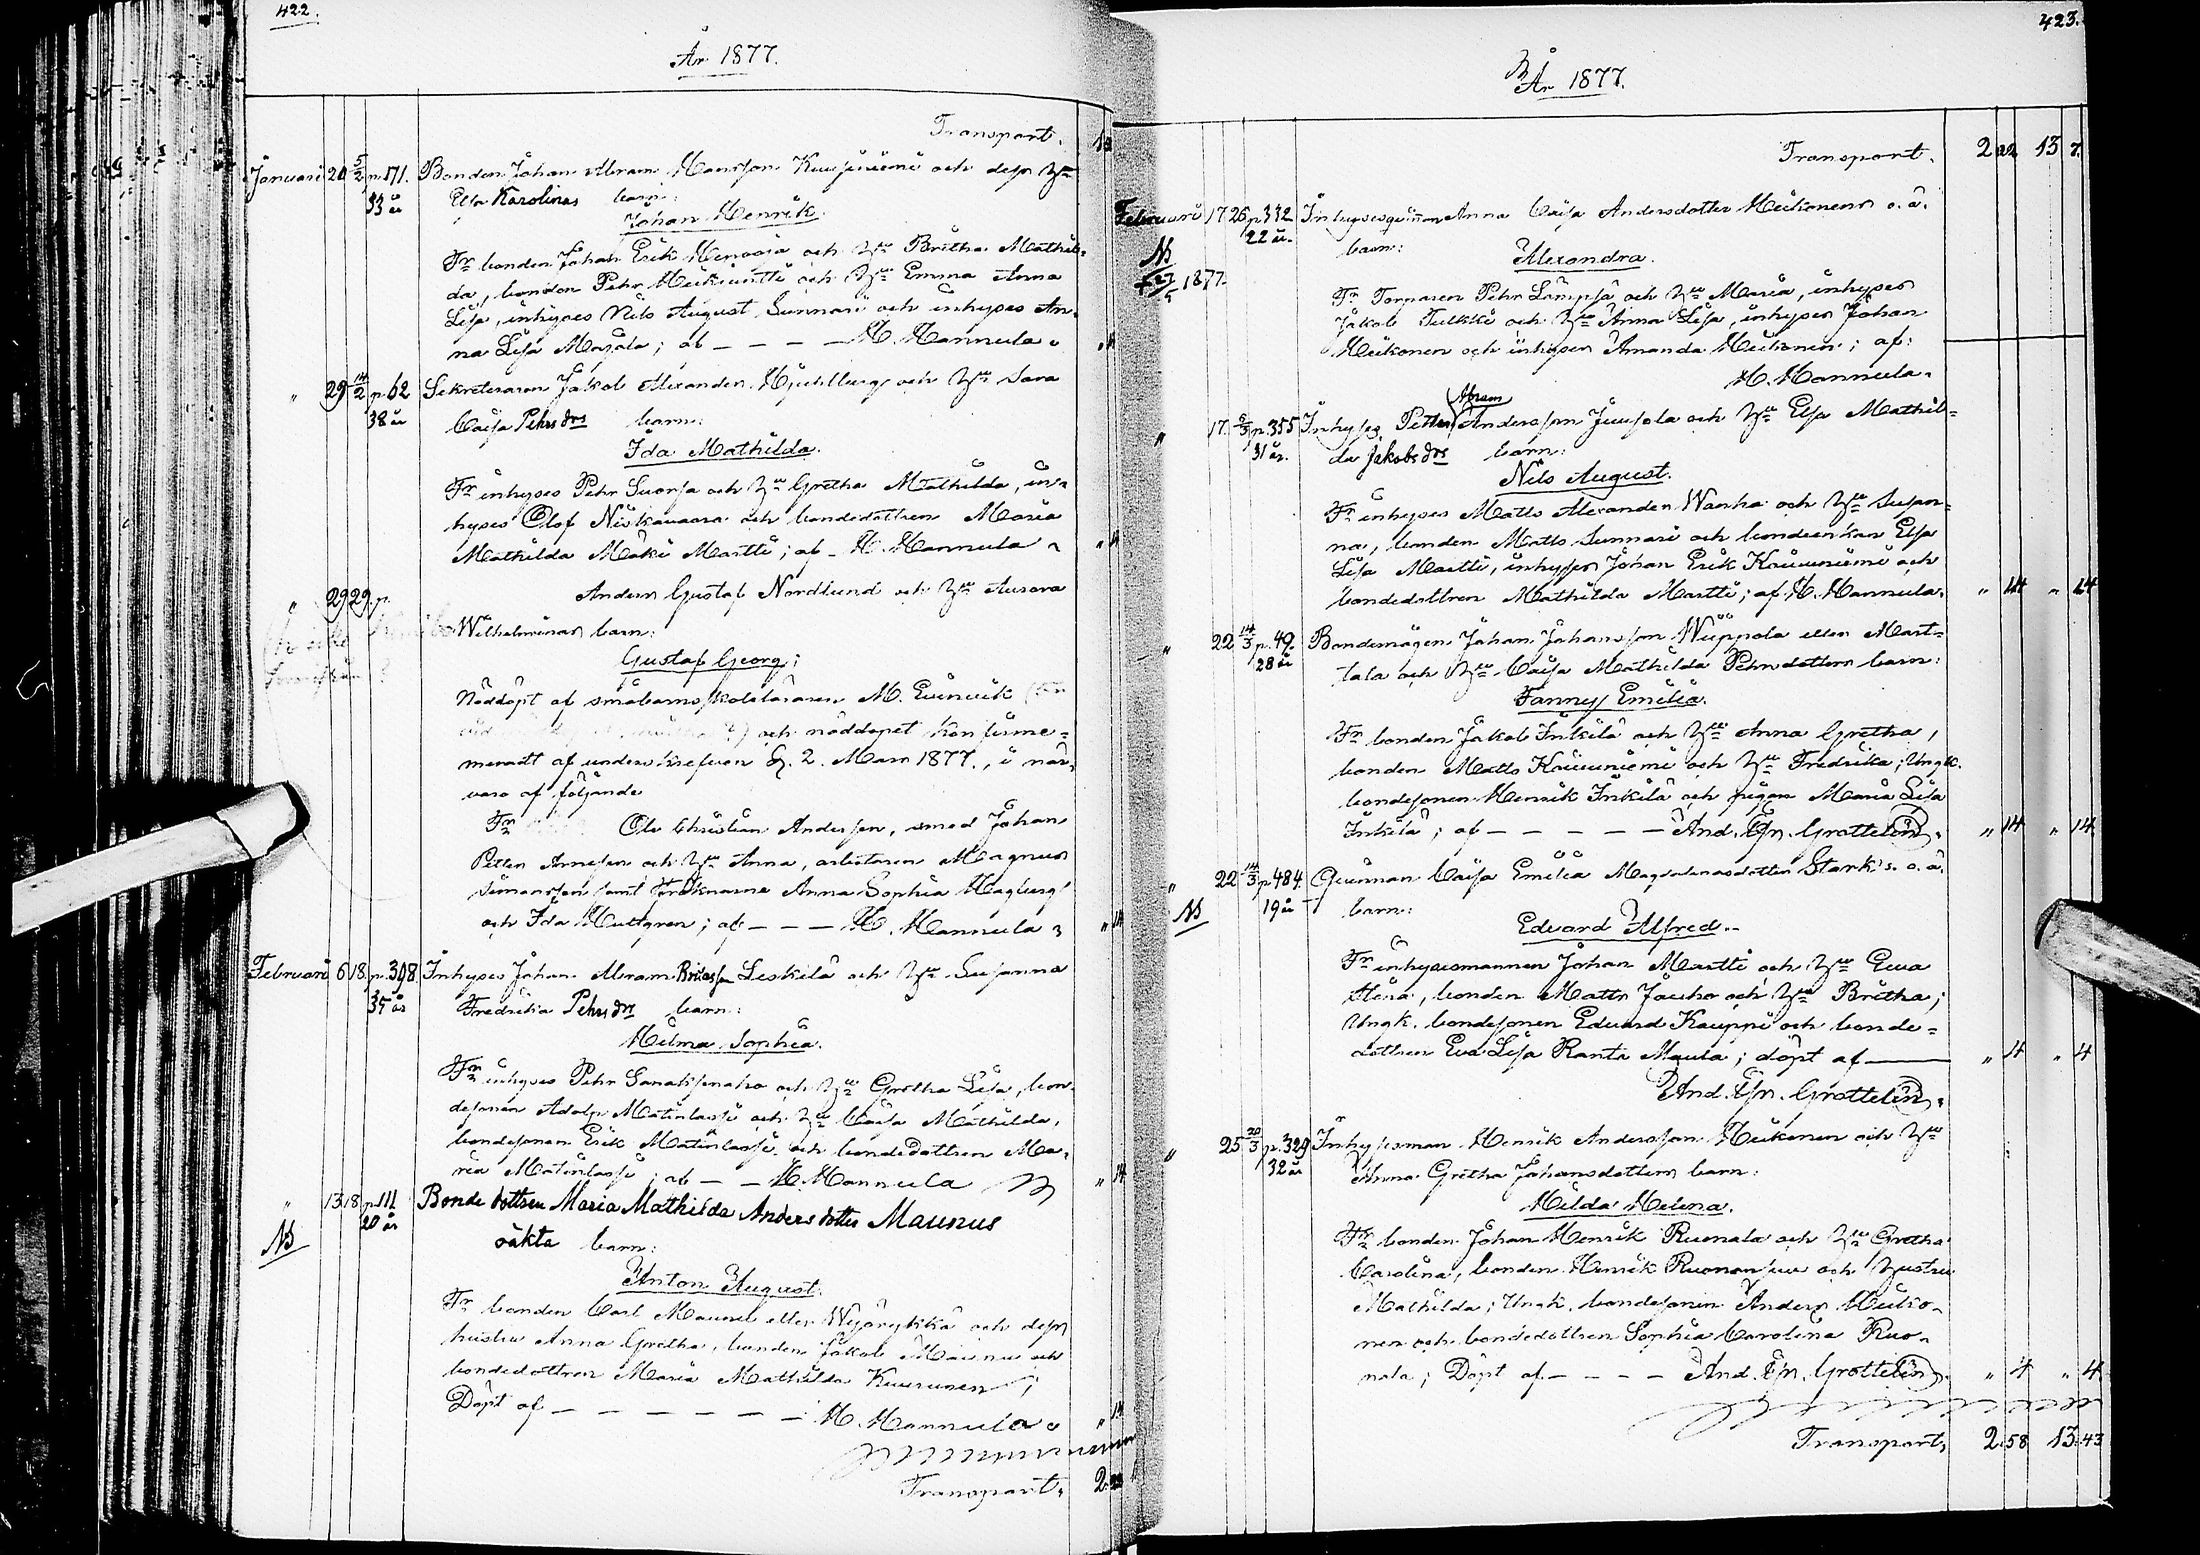 422.
År 1877.
Transport.
Januari 20 5/2 p.171. Bonden Johan Abram Hansson Kuusiniemi och dess H:u
33 år Elsa Karolinas barn:
Johan Henrik.
Fr bonden Johan Erik och H:u Britha Mathil-
da, bonden Pehr och H:u Emma Anna
Lisa, inhyses Nils August Sunnari och inhyses An-
na Lisa Majala; af — — — — H. Hannula.
" 29 14/2 p.62 Sekreteraren Jakob Alexander och H:u Sara
38 år Caisa Pehrsdrs barn:
Ida Mathilda.
Fr inhyses Pehr Suorsa och H:u Gretha Mathilda, in-
hyses Olof Niskavaara och bondedottren Maria
Mathilda Mäki Martti; af — H. Hannula
" 29 29 p. Anders Gustaf Nordlund och H:u Aurora
Wilhelminas barn:
Gustaf Georg;
Nöddöpt af småbarnsskoleläraren M. Evinsik
och nöddopet konfirme-
meradt af underskrefven d. 2. Mars 1877., i när-
varo af följande
Fr Ole Christian Andersen, smed Johan
Petter Arnesen och H:u Anna, arbetaren Magnus
Simonsen samt fröknarna Anna Sophia Hagberg
och Ida Hultgren; af — — — H. Hannula
Februari 6 18 p.398 Inhyses Johan Abram Britasson Leskelä och H:u Susanna
35 år Fredrika Pehrsdrs barn:
Hilma Sophia.
Fr inhyses Pehr Sanaksenaho och H:u Gretha Lisa, bon-
desonen Adolf Matinlassi och H:u Caisa Mathilda,
bondesonen Erik Matinlassi och bondedottren Ma-
ria Matinlassi; af — — H. Hannula
" 13 18 p.111 Bondedottren Maria Mathilda Andersdotter Maunus
20 år oäkta barn:
NB
Anton August.
Fr bonden Carl Maunu eller och dess
hustru Anna Gretha, bonden Jakob Maunu och
bondedottren Maria Mathilda Kuurunen;
Döpt af — — — — — — H. Hannula.
Transport. 2.22
423.
År 1877.
Transport. 2 22 13 7.
Februari 17 26 p.332 Inhysesqvinnan Anna Caisa Andersdotter Heikonens o. ä.
22 år. barn:
NB
1877.
Alexandra.
Fr Torparen Pehr Lämpsä och H:u Maria, inhyses
Jakob Tulkki och H:u Anna Lisa, inhyses Johan
Heikonen och inhyses Amanda Heikonen; af:
H. Hannula.
" 17 5/3 p.355 Inhyses Petter Abram Andersson Juusola och H:u Elsa Mathil-
31 år. da Jakobsdrs barn:
Nils August.
Fr inhyses Matts Alexander Wanha och H:u Susan-
na, bonden Matts Sunnari och bondeenkan Elsa
Lisa Martti, inhyses Johan Erik Kauiniemi och
bondedottren Mathilda Martti; af H. Hannula. " 14 " 14
" 22 14/3 p.49. Bondemågen Johan Johansson Wiippola eller Mart-
28 år tala och H:u Caisa Mathilda Pehrsdotters barn:
Fanny Emilia.
Fr bonden Jakob Inkilä och H:u Anna Gretha,
bonden Matts Kauiniemi och H:u Fredrika; Ungk.
bondesonen Henrik Inkilä och pigan Maria Lisa
Inkilä; af — — — — — And. Grottelin. " 14 " 14
" 22 14/3 p.484. Qvinnan Caisa Emilia Magdalenasdotter Stark's o. ä.
NB 19 år barn:
Edvard Alfred.
Fr inhysesmannen Johan Martti och H:u Eva
Stina, bonden Matts Jauho och H:u Britha;
Ungk. bondesonen Edvard Kauppi och bonde-
dottren Eva Lisa Ranta Maula; döpt af — " 4 " 4
And. Grottelin.
" 25 20/3 p.329 Inhysesman Henrik Andersson Heikonen och H:u
32 år Anna Gretha Johansdotters barn:
Hilda Helena.
Fr bonden Johan Henrik Ruonala och H:u Gretha
Carolina, bonden Henrik Ruonansuu och Hustru
Mathilda; Ungk. bondesonen Anders Heiko-
nen och bondedottren Sophia Carolina Ruo-
nala; Döpt af — — — — And. Grottelin. " 4 " 4
Transport, 2 58 13 43